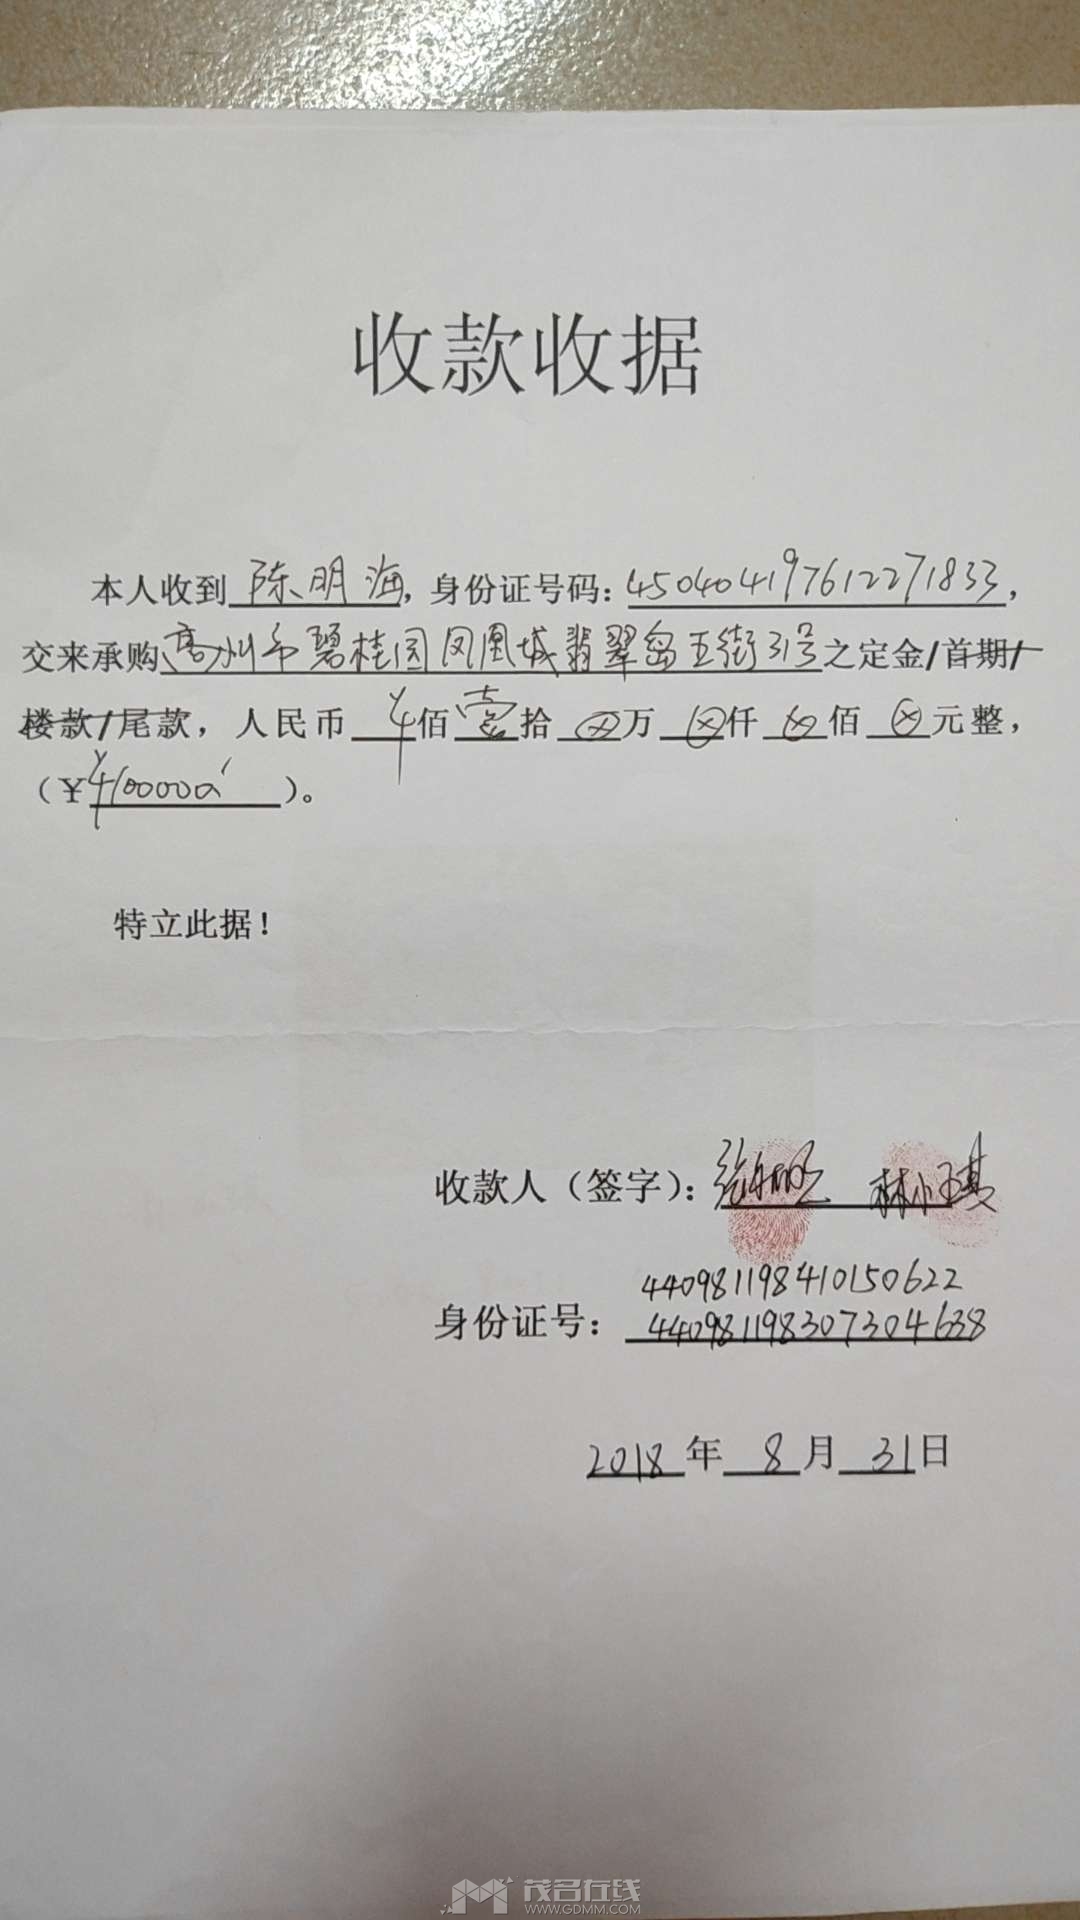 收款收据
本人收到陈明海，身份证号码：450404197612271833，
交来承购高州市碧桂园凤凰城翡翠岛五街31号之定金/首期/
楼款/尾款，人民币¥佰壹拾⊗万⊗仟⊗佰⊗元整，
（¥¥100000）。
特立此据！
收款人（签字）： 林小琪
440981198410150622
身份证号：440981198307304638
2018年8月31日
茂名在线
WWW.GDMM.COM